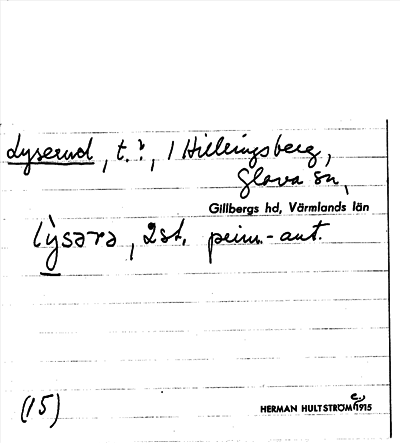 Lyserud, t.?, / Hillringsberg,
Glava sn,
Gillbergs hd, Värmlands län
lỳsərə, 2 st. peim.-ant.
(15)
HERMAN HULTSTRÖM 1915